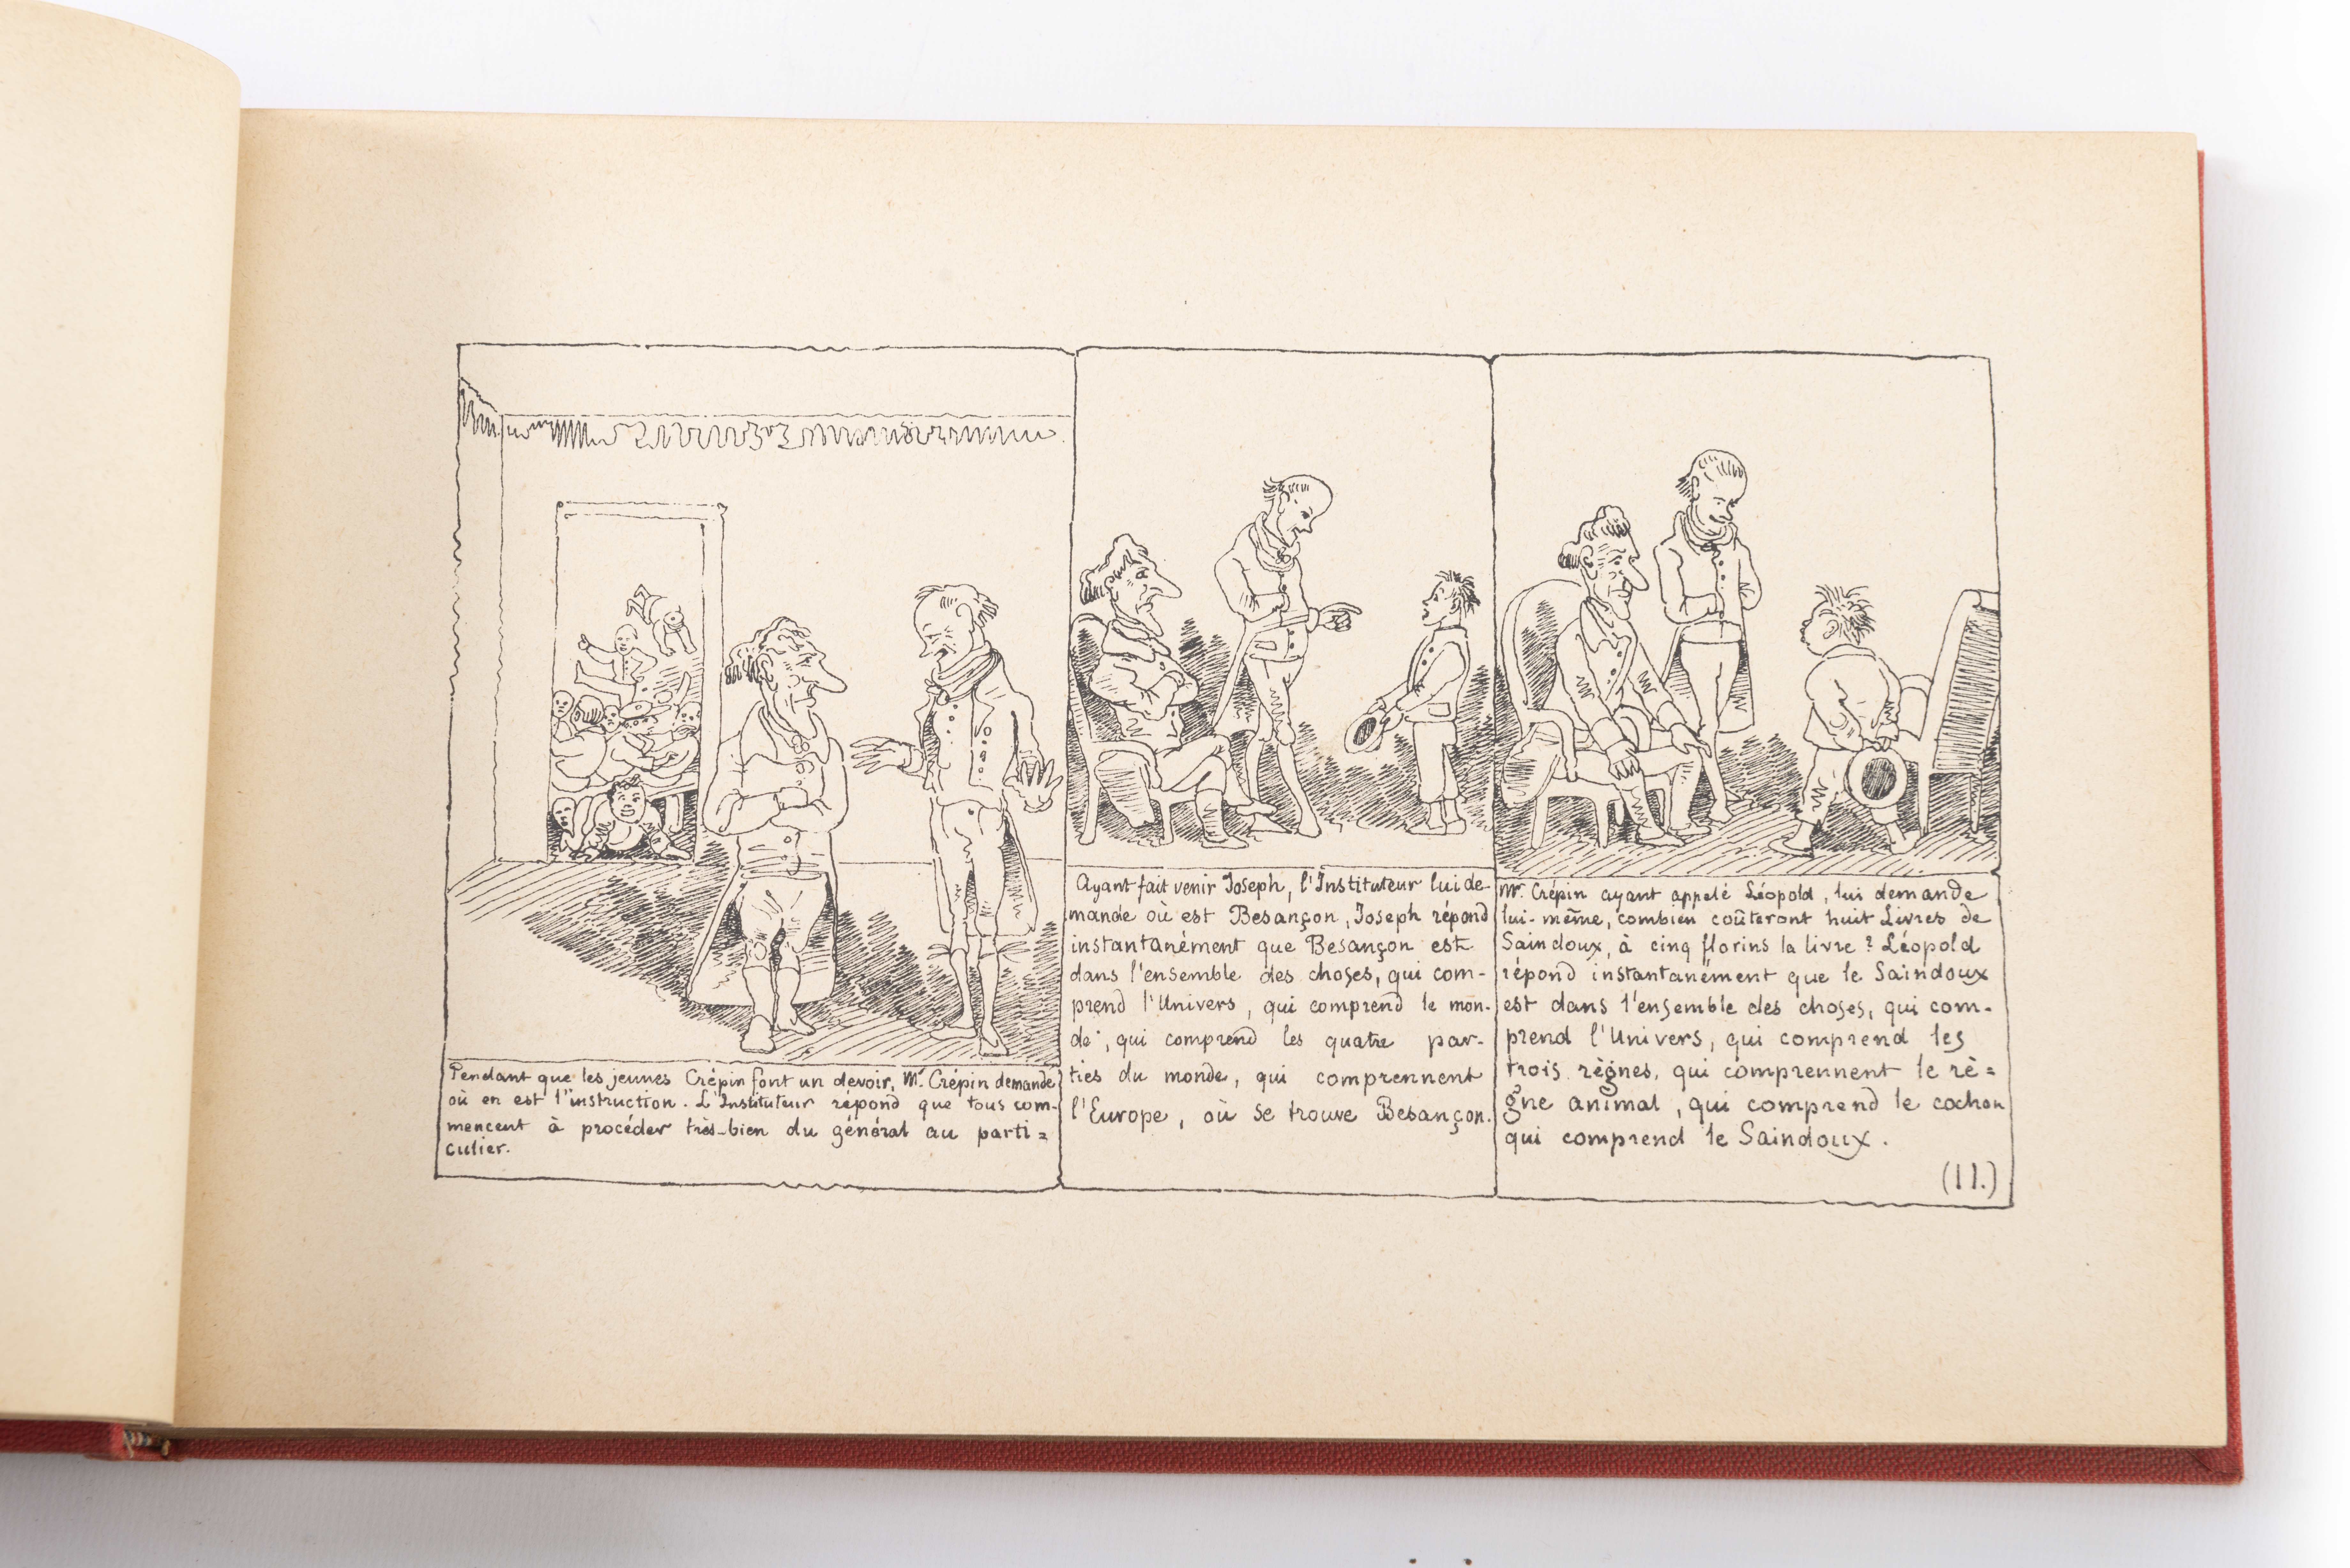 Pendant que les jeunes Crépin font un devoir, Mr. Crépin demande
où en est l'instruction. L'Instituteur répond que tous com-
mencent à procéder très-bien du général au parti=
culier.
Ayant fait venir Joseph, l'Instituteur lui de-
mande où est Besançon, Joseph répond
instantanément que Besançon est
dans l'ensemble des choses, qui com-
prend l'Univers, qui comprend le mon-
de, qui comprend les quatre par-
ties du monde, qui comprennent
l'Europe, où se trouve Besançon.
Mr. Crépin ayant appelé Léopold, lui demande
lui-même, combien coûteront huit Livres de
Saindoux, à cinq florins la livre? Léopold
répond instantanément que le Saindoux
est dans l'ensemble des choses, qui com-
prend l'Univers, qui comprend les
trois règnes, qui comprennent le rè=
gne animal, qui comprend le cochon
qui comprend le Saindoux.
(11.)